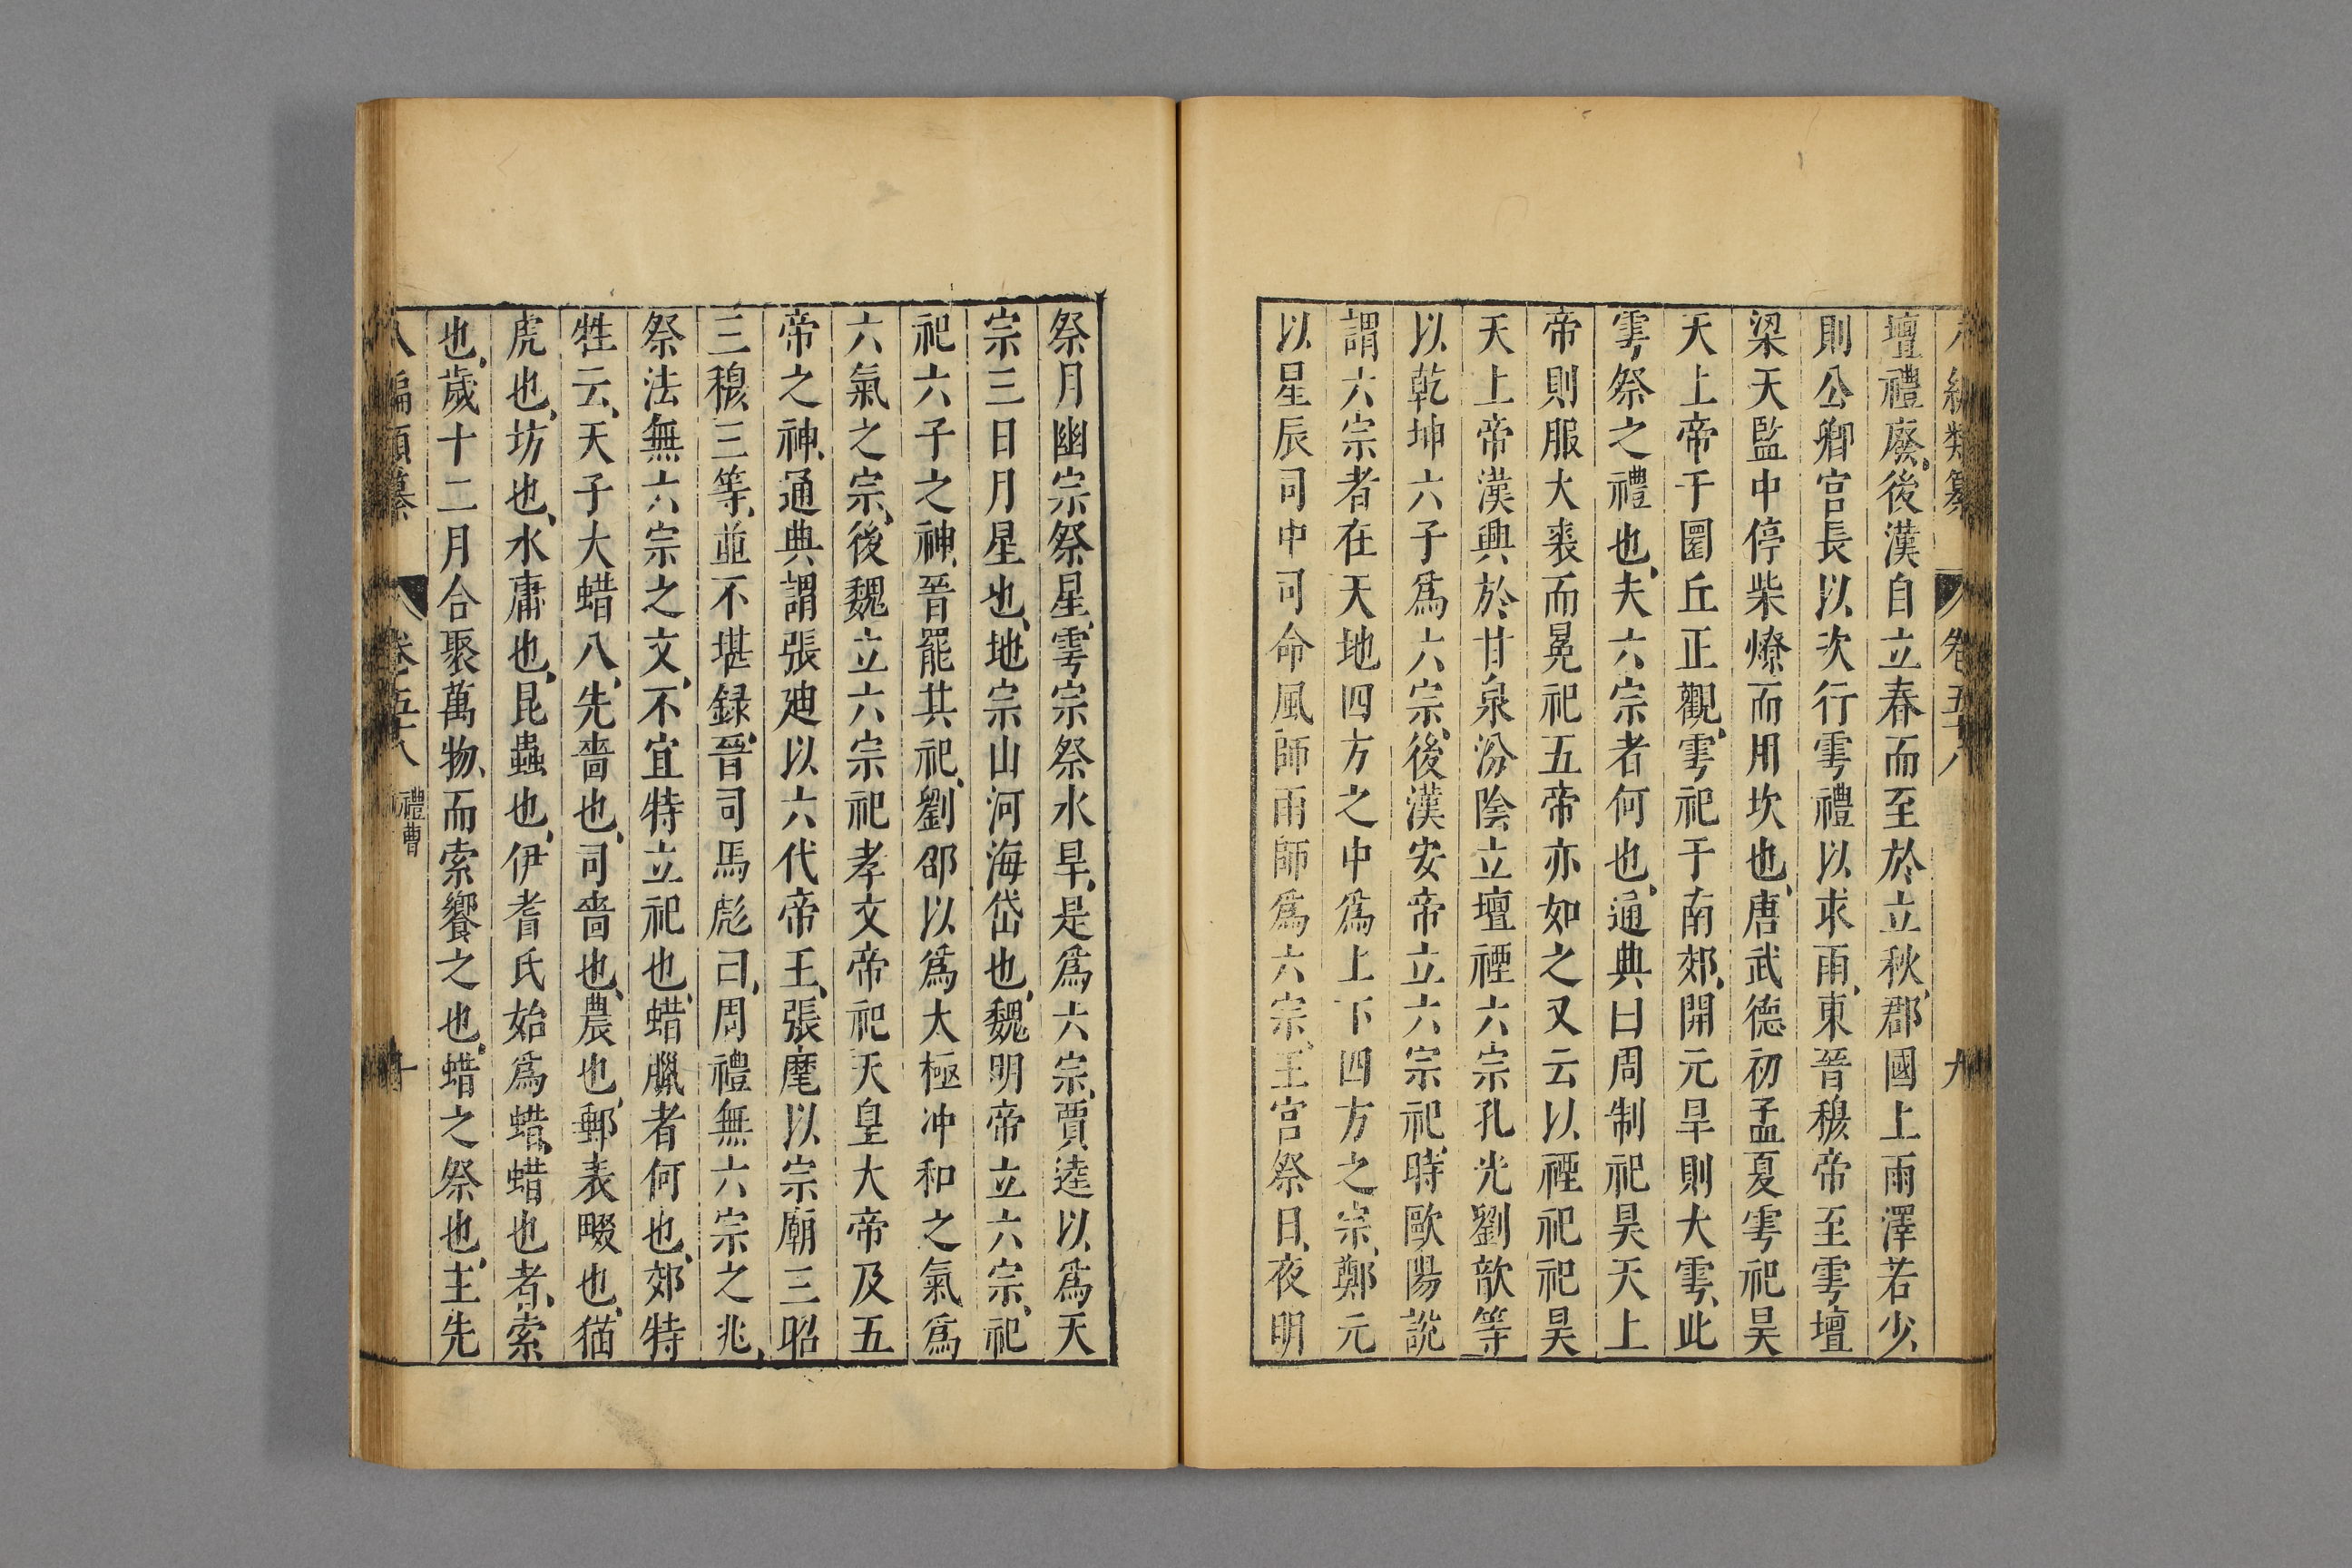 編類纂 卷五十八 九
壇禮廢後漢自立春而至於立秋郡國上雨澤若少
則公卿官長以次行雩禮以求雨東晉穆帝至雩壇
梁天監中停柴燎而用坎也唐武德初孟夏雩祀昊
天上帝于圜丘正觀雩祀于南郊開元旱則大雩此
雩祭之禮也夫六宗者何也通典曰周制祀昊天上
帝則服大裘而冕祀五帝亦如之又云以禋祀祀昊
天上帝漢興於甘泉汾陰立壇禋六宗孔光劉歆等
以乾坤六子爲六宗後漢安帝立六宗祀時歐陽說
謂六宗者在天地四方之中爲上下四方之宗鄭元
以星辰司中司命風師雨師爲六宗王宮祭日夜明
祭月幽宗祭星雩宗祭水旱是爲六宗賈逵以爲天
宗三日月星也地宗山河海岱也魏明帝立六宗祀
祀六子之神晉罷其祀劉邵以爲大極冲和之氣爲
六氣之宗後魏立六宗祀孝文帝祀天皇大帝及五
帝之神通典謂張廸以六代帝王張麾以宗廟三昭
三穆三等並不堪録晉司馬彪曰周禮無六宗之兆
祭法無六宗之文不宜特立祀也蜡臘者何也郊特
牲云天子大蜡八先嗇也司嗇也農也郵表畷也猫
虎也坊也水庸也昆蟲也伊耆氏始爲蜡蜡也者索
也歲十二月合聚萬物而索饗之也蜡之祭也主先
八編類纂 卷五十八 禮曹 十